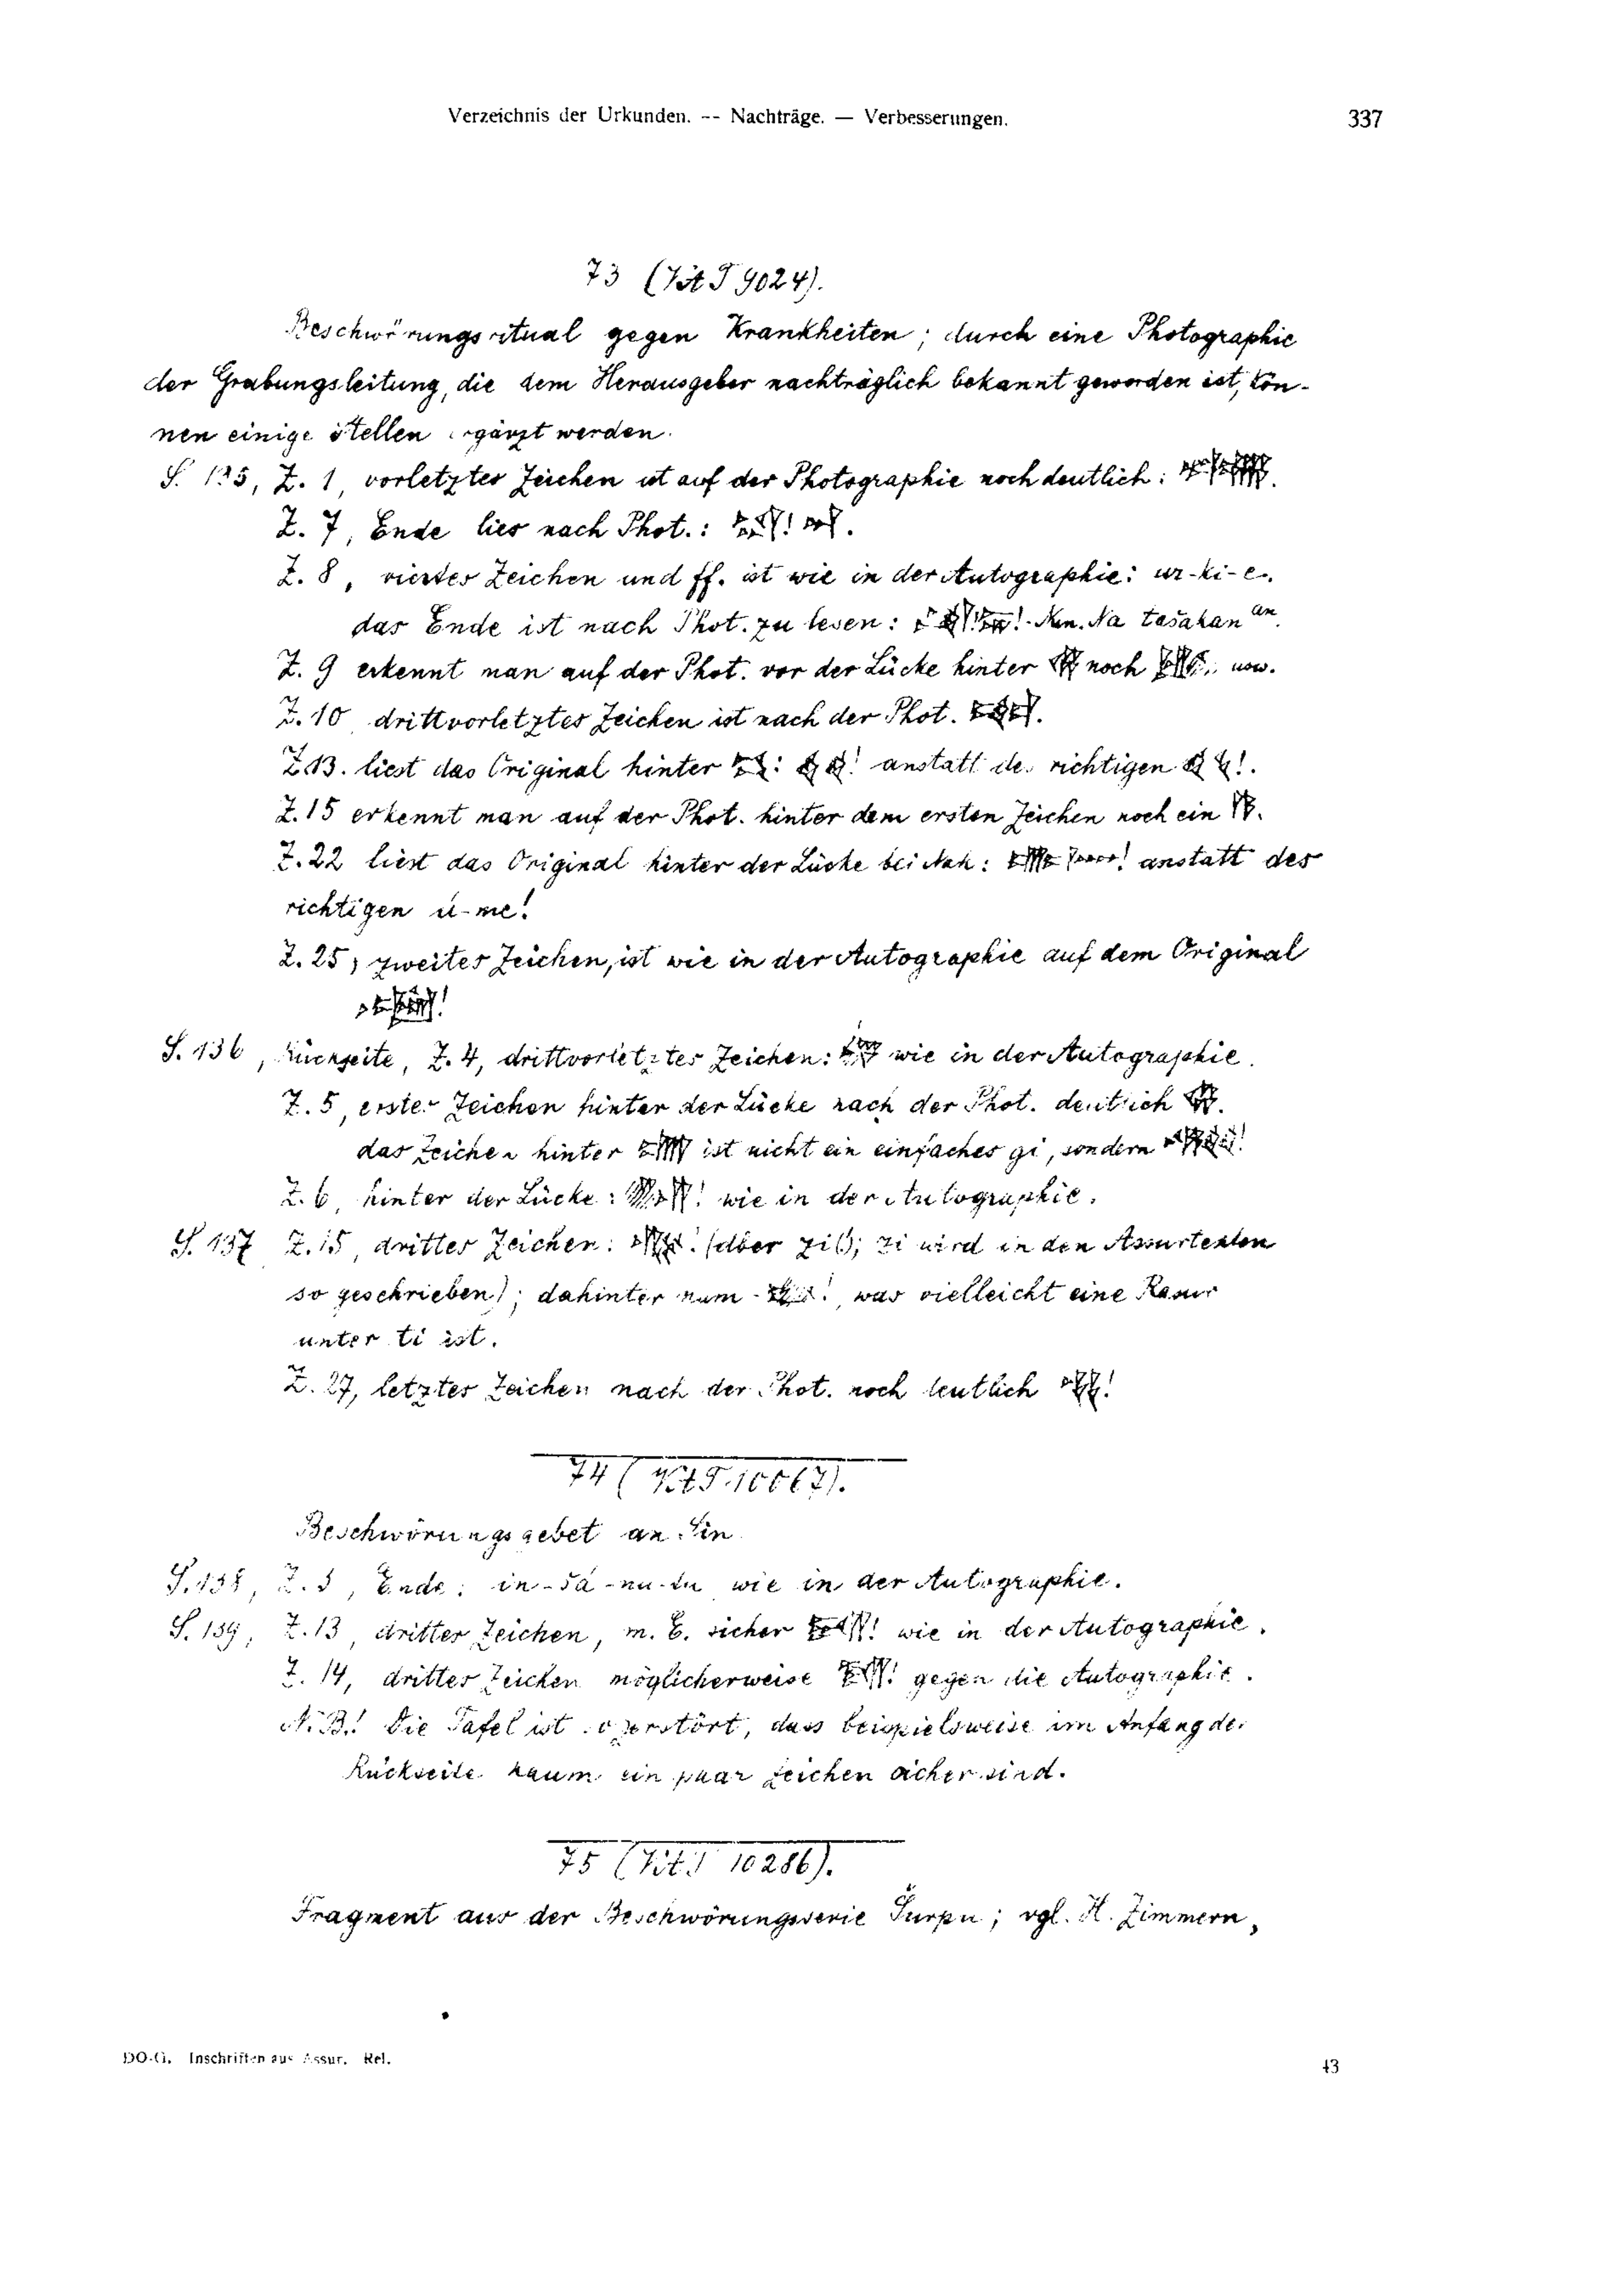 Verzeichnis der Urkunden. -- Nachträge. — Verbesserungen. 337
73 (VAT 9024).
Beschwörungsritual gegen Krankheiten; durch eine Photographie
der Grabungsleitung, die dem Herausgeber nachträglich bekannt geworden ist, kön-
nen einige Stellen ergänzt werden.
S. 135, Z. 1, vorletztes Zeichen ist auf der Photographie noch deutlich:
Z. 7, Ende lies nach Phot.:
Z. 8, viertes Zeichen und ff. ist wie in der Autographie: ur-ki-e.
das Ende ist nach Phot. zu lesen: Na tašakan an.
Z. 9 erkennt man auf der Phot. vor der Lücke hinter noch usw.
Z. 10 drittvorletztes Zeichen ist nach der Phot.
Z. 13. liest das Original hinter : ! anstatt des richtigen !.
Z. 15 erkennt man auf der Phot. hinter dem ersten Zeichen noch ein
Z. 22 liest das Original hinter der Lücke bei : ! anstatt des
richtigen ú-me!
Z. 25, zweites Zeichen, ist wie in der Autographie auf dem Original
S. 136, Rückseite, Z. 4, drittvorletztes Zeichen: wie in der Autographie.
Z. 5, erstes Zeichen hinter der Lücke nach der Phot. deutlich
das Zeichen hinter ist nicht ein einfaches gi, sondern
Z. 6 hinter der Lücke: ! wie in der Autographie.
S. 137 Z. 15, drittes Zeichen: ! (aber zi(!); zi wird in den Assurtexten
so geschrieben); dahinter num - !, was vielleicht eine Rasur
unter ti ist.
Z. 27, letztes Zeichen nach der Phot. noch deutlich !
74 (VAT 10067).
Beschwörungsgebet an Sin
S. 138, Z. 3, Ende: wie in der Autographie.
S. 139, Z. 13, drittes Zeichen, m. E. sicher ! wie in der Autographie.
Z. 14, drittes Zeichen möglicherweise ! gegen die Autographie.
N.B.! Die Tafel ist so zerstört, dass beispielsweise im Anfang der
Rückseite kaum ein paar Zeichen sicher sind.
75 (VAT 10286).
Fragment aus der Beschwörungsserie Šurpu; vgl. H. Zimmern,
DO-G. Inschriften aus Assur. Rel. 43